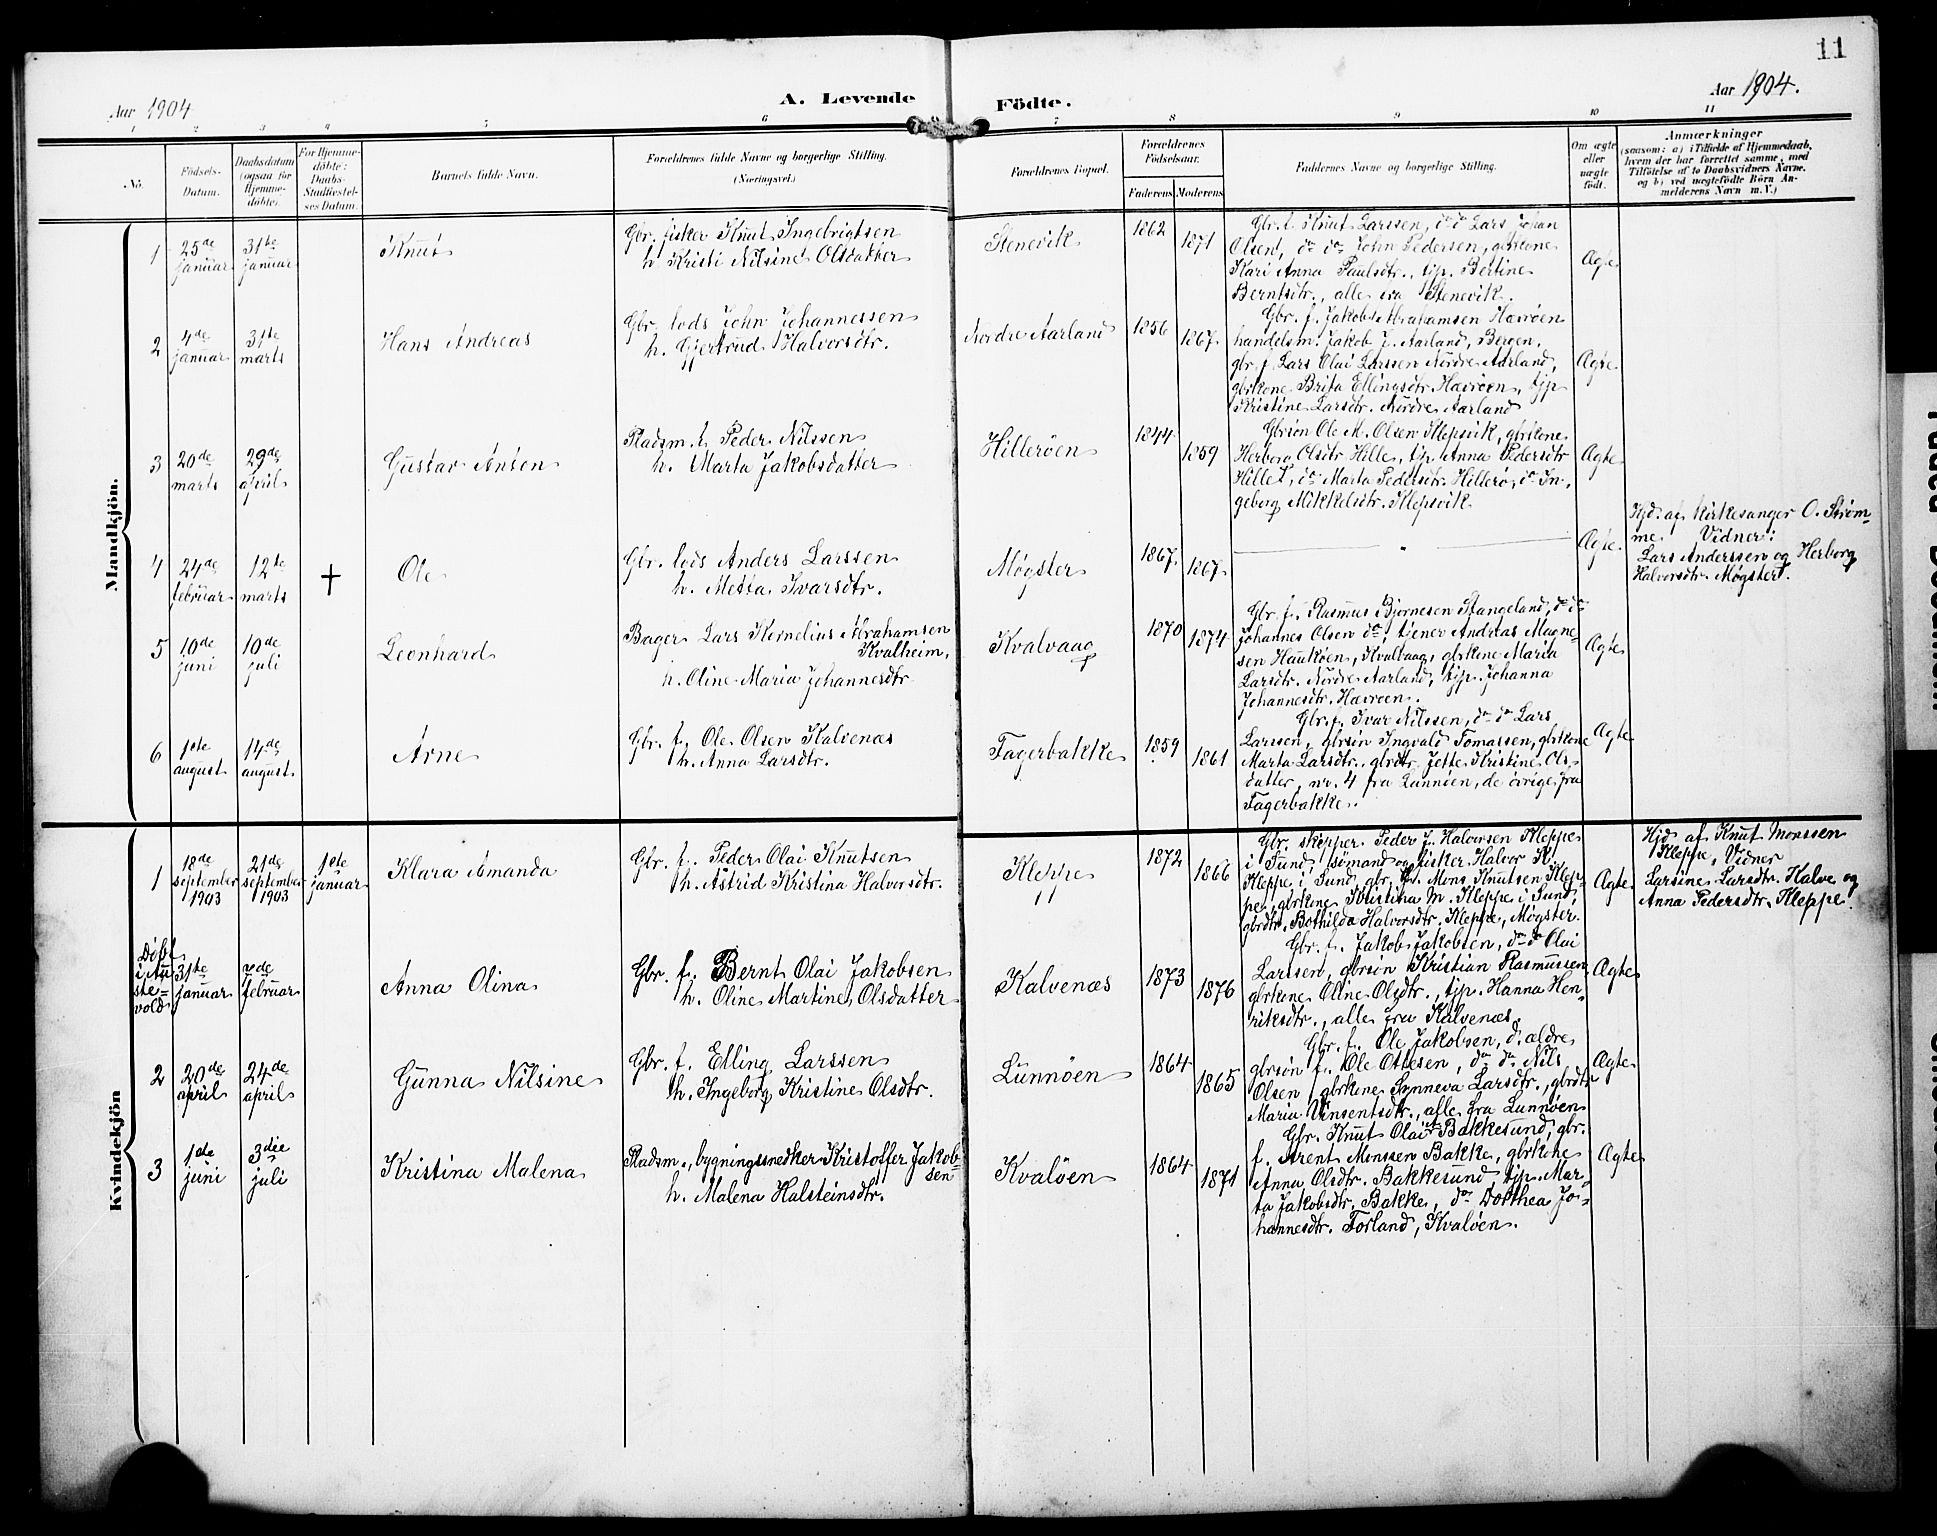 11
Aar 1904
A. Levende Födte.
Aar 1904.
1 2 3 4 5 6 7 8 9 10 11
No.
Födsels-
Datum.
Daabsdatum
(ogsaa for
Hjemme-
döbte).
For Hjemme-
döbte:
Daabs-
Stadfæstel-
ses Datum.
Barnets fulde Navn.
Forældrenes fulde Navne og borgerlige Stilling.
(Næringsvei.)
Forældrenes Bopæl.
Forældrenes
Födselsaar.
Faderens Moderens
Faddernes Navne og borgerlige Stilling.
Om ægte
eller
uægte
født.
Anmærkninger
(saasom: a) i Tilfælde af Hjemmedaab,
hvem der har forrettet samme, med
Tilföielse af to Daabsvidners Navne.
og b) ved uægtefödte Börn An-
melderens Navn m. V.)
Mandkjön.
1
25de
januar
31te
januar
Knut
Gbr. fisker Knut Ingebrigtsen
h. Kristi Nilsine Olsdatter
Stenevik
1862
1871
Gbr. f. Knut Larssen, do do Lars Johan
Olsen, do do John Pedersen, gbrkone
Kari Anna Paulsdtr., tjp. Bertine
Berntsdtr., alle fra Stenevik.
Ægte
2
4de
januar
31te
marts
Hans Andreas
Gbr. lods John Johannessen
h. Gjertrud Halvorsdtr.
Nordre Aarland
1856
1867.
Gbr. f. Jakob Abrahamsen Hævröen
handelsm. Jakob J. Aarland, Bergen,
gbr. f. Lars Olai Larssen Nordre Aarland,
gbrkone Brita Ellingsdtr. Hævröen, tjp
Kristine Larsdtr. Nordre Aarland
Ægte
3
20de
marts
29de
april
Gustav Anton
Pladsm. f. Peder Nilssen
h. Marta Jakobsdatter
Hilleröen
1844
1859
Gbrsön Ole M. Olsen Klepsvik, gbrkone
Herborg Olsdtr Hille, tjp. Anna Pedersdtr
Hille, do Marta Pedersdtr. Hillerö, do In-
geborg Mikkelsdtr. Klepsvik
Ægte
4
24de
februar
12te
marts
+
Ole
Gbr. lods Anders Larssen
h. Metta Ivarsdtr.
Møgster
1867.
1867.
Ægte
Hjd. af kirkesanger O. Strøm-
me Vidner:
Lars Anderssen og Herborg
Halvorsdtr. Møgster.
5
10de
juni
10de
juli
Leonhard
Bager Lars Kornelius Abrahamsen
Kvalheim,
h. Oline Maria Johannesdtr
Kvalvaag
1870
1874
Gbr. f. Rasmus Bjørnesen Stangeland, do do
Johannes Olsen do, tjener Andreas Magne-
sen Haukøen, Kvalvaag, gbrkone Maria
Larsdtr. Nordre Aarland, tjp. Johanna
Johannesdtr. Hævröen.
Ægte
6
1ste
august
14de
august
Arne
Gbr. f. Ole Olsen Kalvenæs
h. Anna Larsdtr.
Fagerbakke
1859
1861
Gbr. f. Ivar Nilssen, do do Lars
Larssen, gbrsön Ingvald Tomassen, gbrkone
Marta Larsdtr. gbrdtr. Jette Kristine Ols-
datter, nr. 4 fra Lunnöen, de övrige fra
Fagerbakke.
Ægte
Kvindekjön
1
18de
september
1903
21de
september
1903
1ste
januar
Klara Amanda
Gbr. f. Peder Olai Knutsen
h. Astrid Kristina Halvorsdtr.
Kleppe
1872
1866
Gbr. skipper Peder J. Halvorsen Kleppe
i Sund, sömand og fisker Halvor K.
Kleppe i Sund, gbr. f. Mons Knutsen Klep-
pe, gbrkone Kristina M. Kleppe i Sund,
gbrdtr. Bothilda Halvorsdtr. Kleppe, Møgster.
Ægte
Hjd af Knut Monssen
Kleppe, Vidner
Larsine Larsdtr. Kalve og
Anna Pedersdtr. Kleppe.
Döbt
i Au
ste=
vold
31te
januar
7de
februar
Anna Olina
Gbr. f. Bernt Olai Jakobsen
h. Oline Martine Olsdatter
Kalvenæs
1873
1876
Gbr. f. Jakob Jakobsen, do do Olai
Larssen, gbrsön Kristian Rasmussen
gbrkone Oline Olsdtr., tjp. Hanna Hen-
riksdtr., alle fra Kalvenæs.
Ægte
2
20de
april
24de
april
Gunna Nilsine
Gbr. f. Elling Larssen
h. Ingeborg Kristine Olsdtr.
Lunnöen
1864
1865
Gbr. f. Ole Jakobsen, d. ældre
gbrsön f. Ole Ottesen, do do Nils
Olsen, gbrkone Synneva Larsdtr., gbrdtr
Maria Vinsentsdtr., alle fra Lunnöen
Ægte
3
1de
juni
3die
juli
Kristina Malena
Pladsm., bygningssnedker Kristoffer Jakob-
sen
h. Malena Halsteinsdtr.
Kvalöen
1864
1871
Gbr. Knut Olai Bakkesund, gbr.
f. Arent Monssen Bakke, gbrkone
Anna Olsdtr. Bakkesund, tjp. Mar-
ta Jakobsdtr. Bakke, do Dorthea Jo-
hannesdtr. Torland, Kvalöen.
Ægte